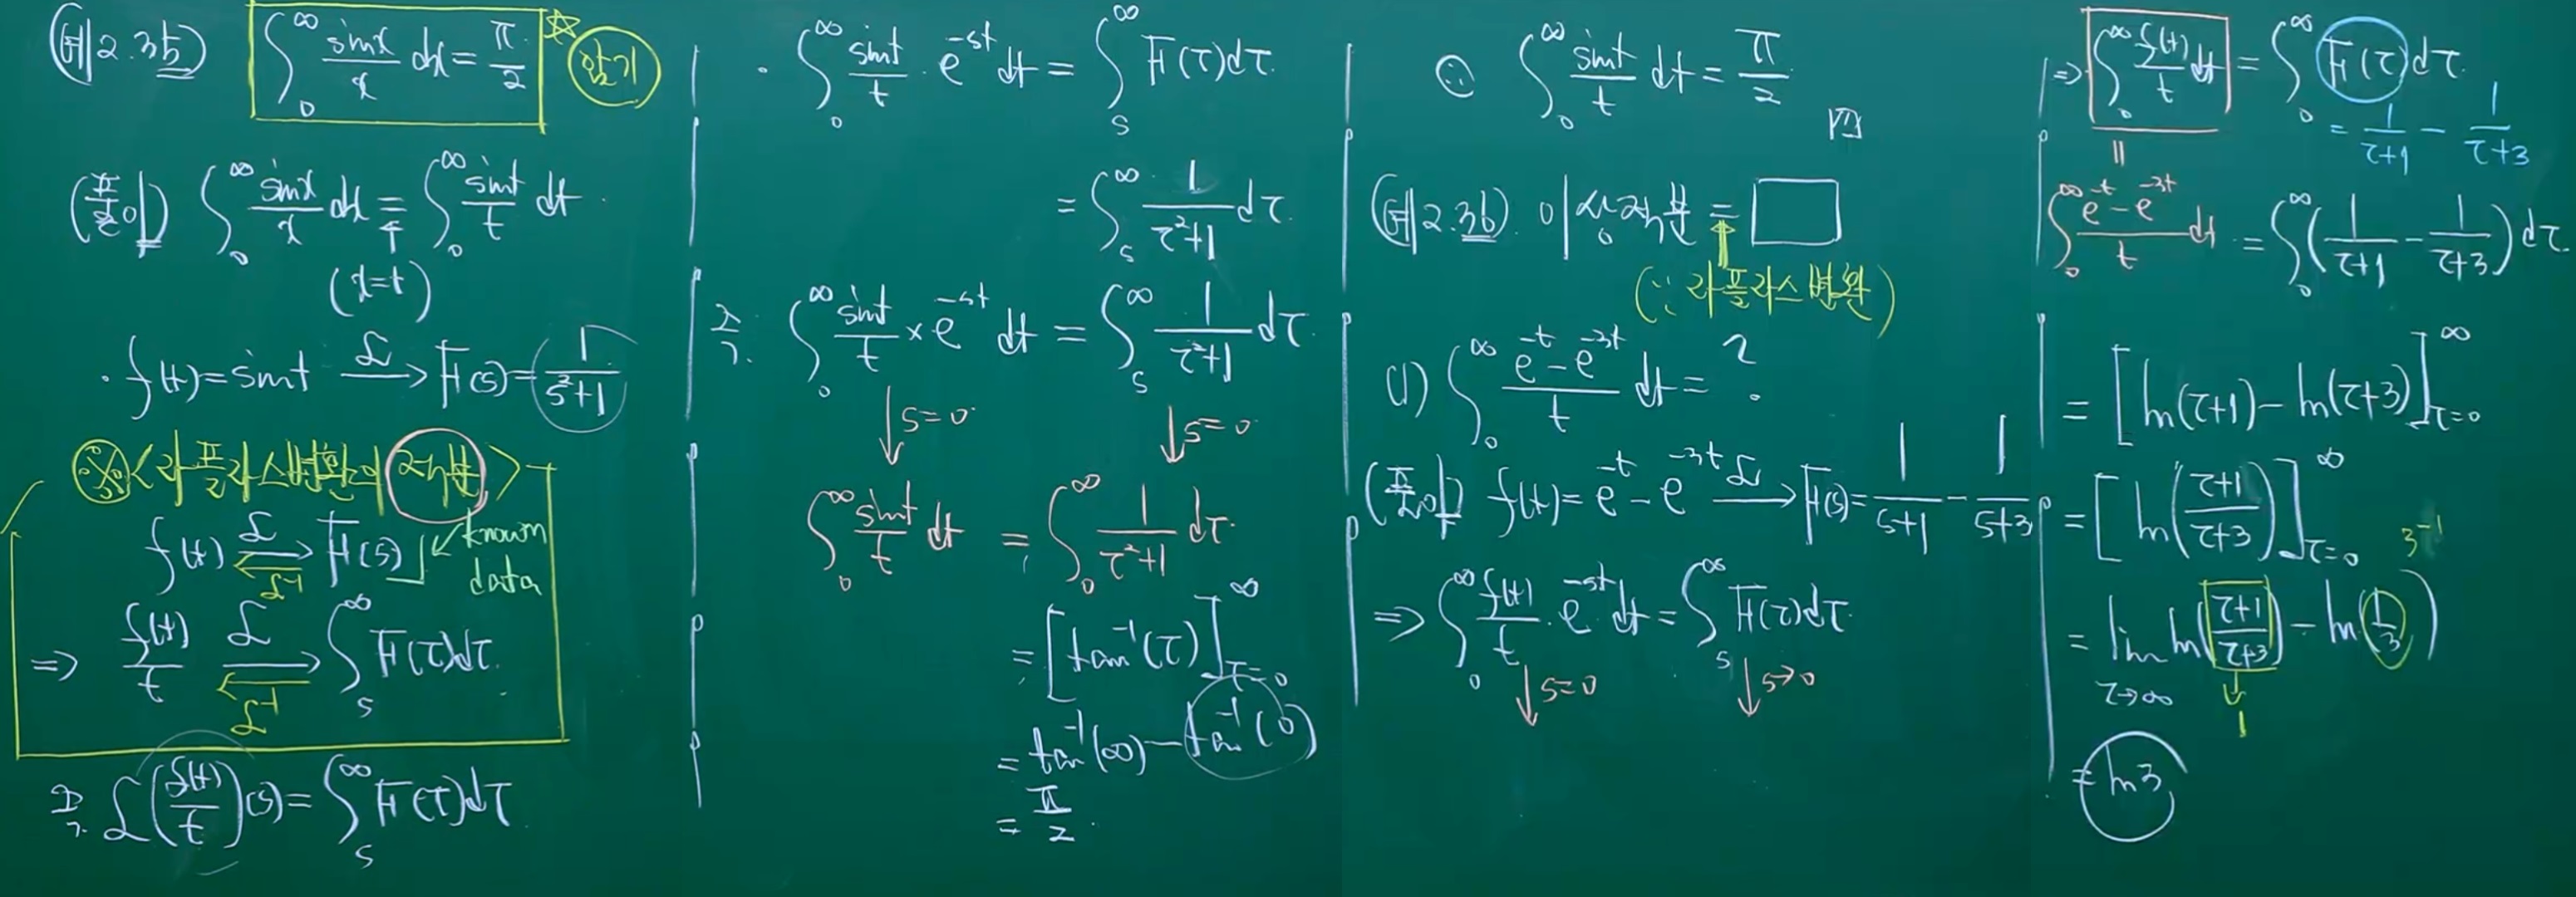 예 2.35) ∫₀^∞ sinx/x dx = π/2 ☆ 암기
(풀이) ∫₀^∞ sinx/x dx = ∫₀^∞ sint/t dt.
↑
(x=t)
· f(t)=sint —ℒ→ F(s)= 1/(s²+1)
※ <라플라스변환의 적분>
f(t) ⇄ F(s) (ℒ, ℒ⁻¹) ↙ known data
⇒ f(t)/t ⇄ ∫ₛ^∞ F(τ)dτ. (ℒ, ℒ⁻¹)
즉, ℒ(f(t)/t)(s) = ∫ₛ^∞ F(τ)dτ
· ∫₀^∞ sint/t · e^{-st} dt = ∫ₛ^∞ F(τ)dτ.
= ∫ₛ^∞ 1/(τ²+1) dτ.
즉, ∫₀^∞ sint/t × e^{-st} dt = ∫ₛ^∞ 1/(τ²+1) dτ
↓ s=0 ↓ s=0
∫₀^∞ sint/t dt = ∫₀^∞ 1/(τ²+1) dτ.
= [tan⁻¹(τ)]_{τ=0}^∞
= tan⁻¹(∞) − tan⁻¹(0)
= π/2.
∴ ∫₀^∞ sint/t dt = π/2
예 2.36). 이상적분 = □
(∵ 라플라스변환)
(1) ∫₀^∞ (e^{-t} − e^{-3t})/t dt = ?
(풀이) f(t) = e^{-t} − e^{-3t} —ℒ→ F(s) = 1/(s+1) − 1/(s+3)
⇒ ∫₀^∞ f(t)/t · e^{-st} dt = ∫ₛ^∞ F(τ)dτ.
↓ s=0 ↓ s→0
⇒ ∫₀^∞ f(t)/t dt = ∫₀^∞ F(τ)dτ.
= 1/(τ+1) − 1/(τ+3)
||
∫₀^∞ (e^{-t} − e^{-3t})/t dt = ∫₀^∞ (1/(τ+1) − 1/(τ+3)) dτ.
= [ln(τ+1) − ln(τ+3)]_{τ=0}^∞
= [ln((τ+1)/(τ+3))]_{τ=0}^∞
3⁻¹
= lim_{τ→∞} ln((τ+1)/(τ+3)) − ln(1/3)
↓
1
= ln3